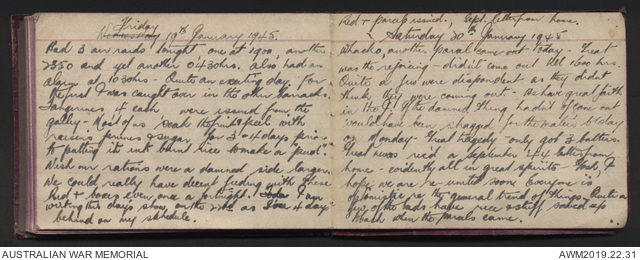 Friday
Wednesday 19th January 1945.
Had 3 air raids tonight one at 1900, another
2350 and yet another 0430hrs. also had an
alarm at 1030hrs - Quite an exciting day. for
the first I was caught over in the other barracks.
Tangerines 1 each were issued from the
galley - Most of us soak the fruit & peel with
raisins prunes & sugar for 3-4 days prior
to putting it into burnt rice to make a "pud"
Wish our rations were a damned side larger
We could really have decent feeding with these
Red X boxes even once a fortnight. I am
writing this days show on the 22nd as I'm 4 days
behind on my schedule.
Red + parcels issued, Sept. letter from home.
Saturday 20th January 1945
Whacko another parcel came out today - Great
was the rejoicing - didn't come out till 1600 hrs.
Quite a few were despondent as they didnt
think they were coming out - We have great faith
in the J. If the damned thing hadnt of come out
would have been shagged for the matinee today
or Monday - Great tragedy - only got 3 butters.
Great news recd a September '44 letter from
home - evidently all in great spirits - Gods I
hope we are re-united soon. Everyone is
optimistic re the general trend of things. Quite a
few of the lads have rice & stuff saved up
when the parcels came.
AUSTRALIAN WAR MEMORIAL
AWM2019.22.31